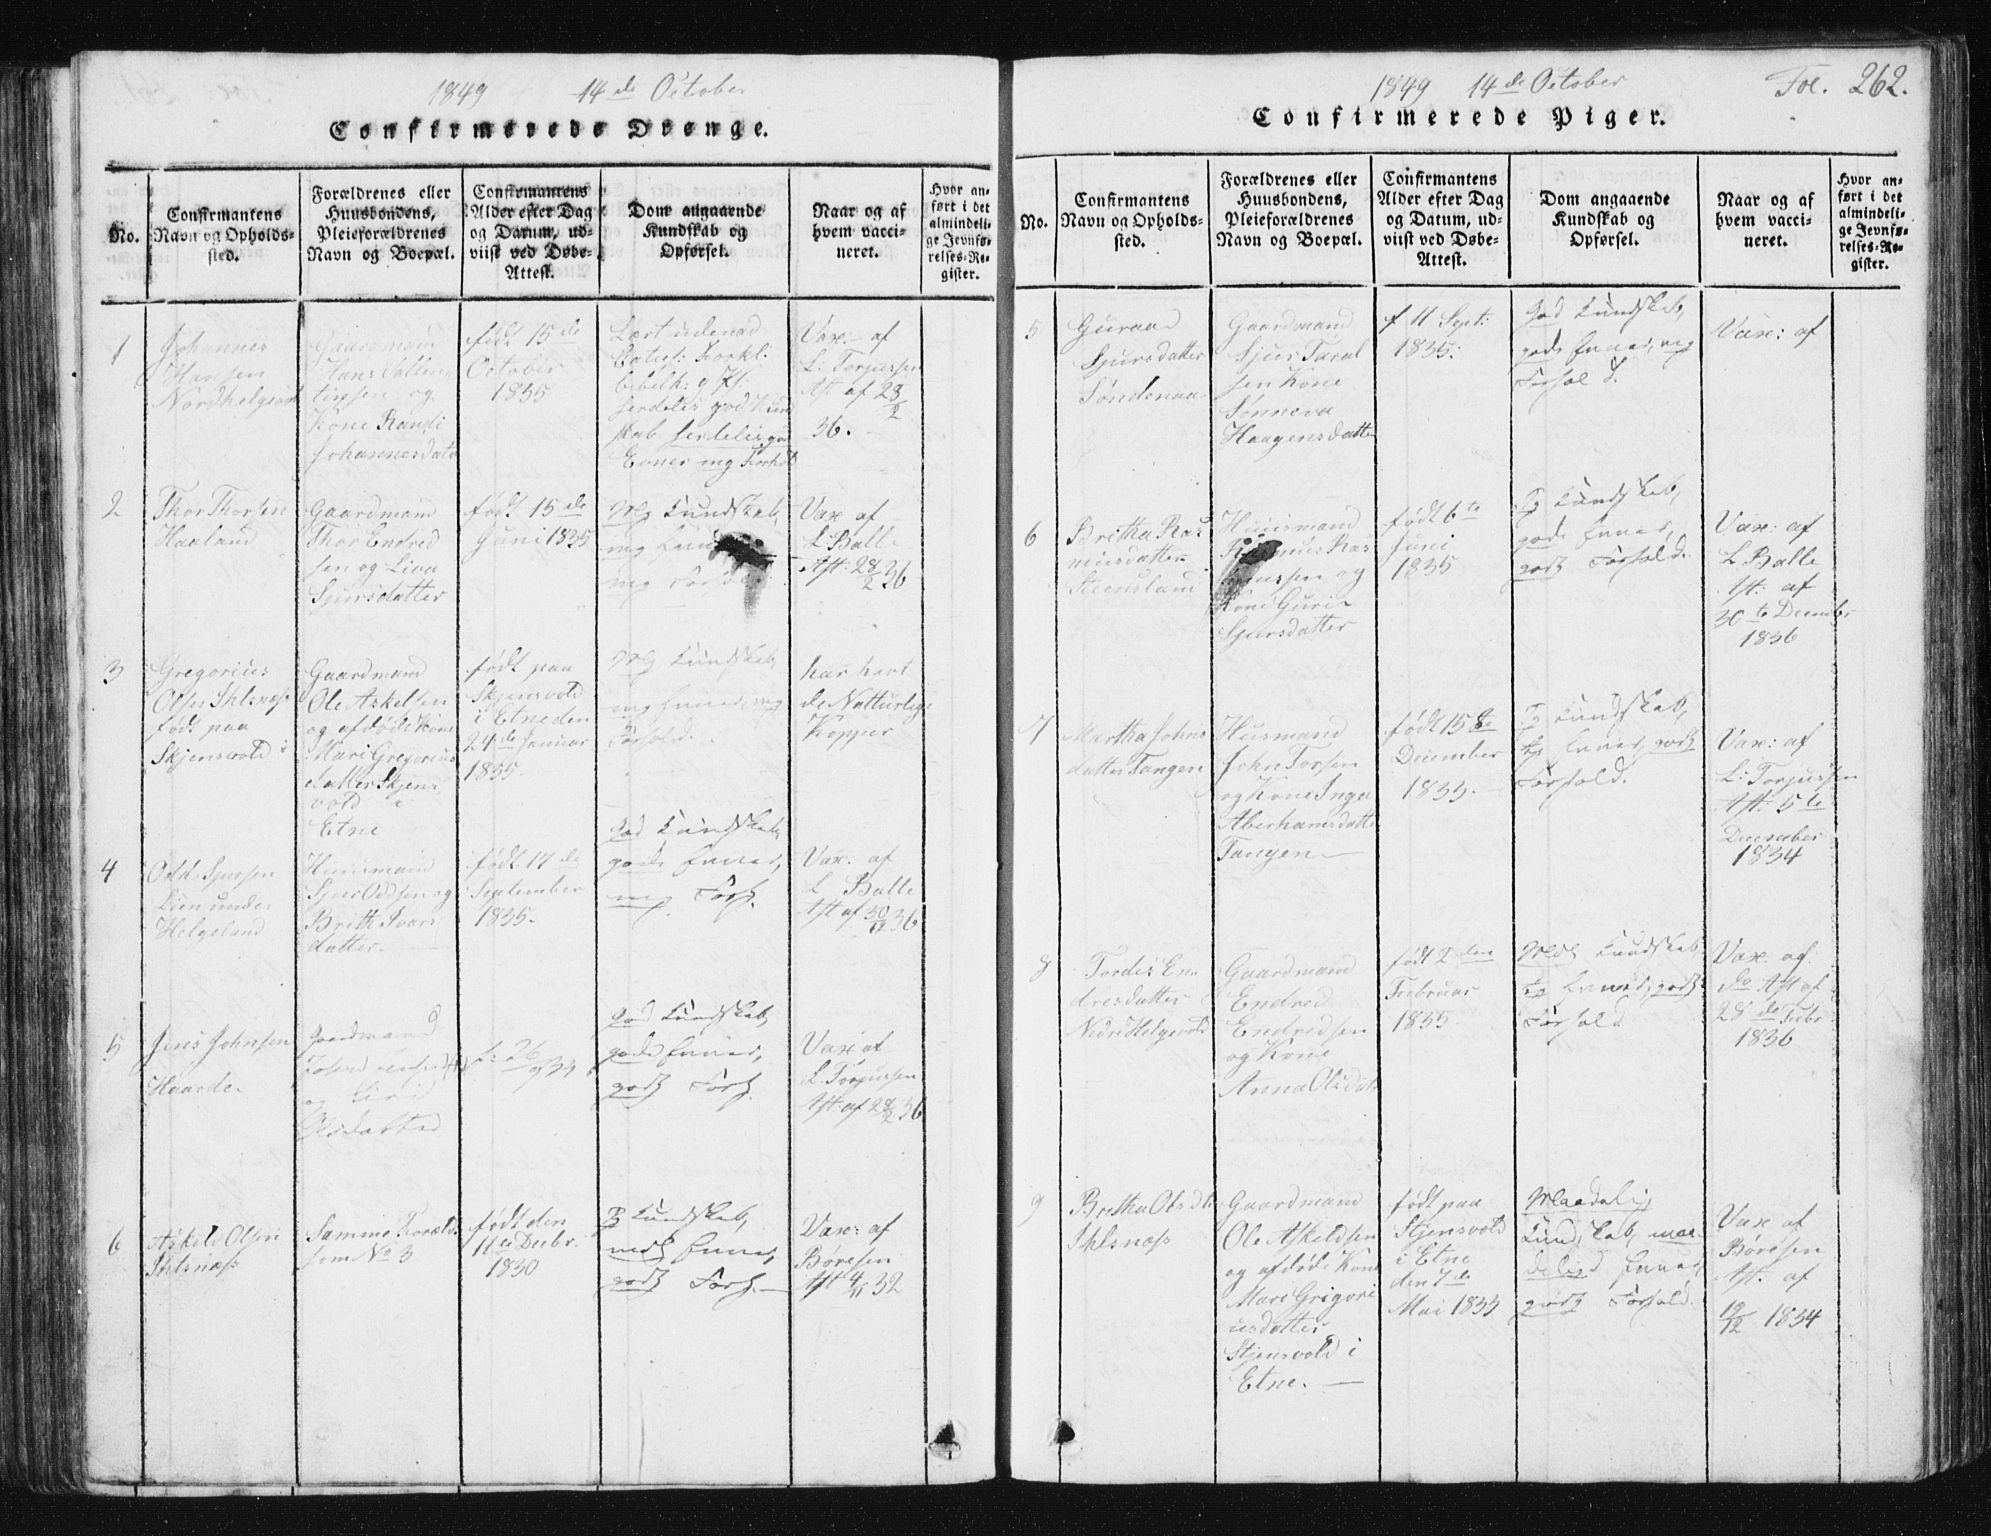 1849 14de October
Confirmerede Drenge.
No.
Confirmantens
Navn og Opholds-
sted.
Forældrenes eller
Huusbondens,
Pleieforældrenes
Navn og Boepæl.
Confirmantens
Alder efter Dag
og Datum, ud-
viist ved Døbe-
Attest.
Dom angaaende
Kundskab og
Opførsel.
Naar og af
hvem vacci-
neret.
Hvor an-
ført i det
almindeli-
ge Jevnfø-
relses-Re-
gister.
1
Johannes
Hansen
Gaardmand
Hans
og
Kone Randi
Johannesdatr
født 15de
October
1835
Lært udenad
god Kund
skab
Evner mg Forhold
Vax: af
L: Torjussen
Att af 28/2
36.
2
Thor Thorsen
Haaland
Gaardmand
Thor Endred
sen og Liva
Sjursdatter
født 15de
Juni 1835
Mg Kundskab,
mg
mg Forhold
Vax af
L. Balle
Att: 28/2 36
3
Gregorius
Olsen Ihlsnæs
født paa
Skjensvold i
Gaardmand
Ole Askelsen
og afdøde Kone
Mari Gregorius
datter Skjens
vold i
Etne
født paa
Skjensvold
i Etne den
24de Januar
1835.
Mg Kundskab,
mg Evner, mg
Forhold.
har havt
de Natturlige
Kopper
4
Odd Sjursen
Lien under
Helgeland
Huusmand
Sjur Oddsen og
Britha Ivars
datter
født 17de
September
1835.
God Kundskab,
gode Evner,
mg Forh.
Vax: af
L Balle
Att af 30/12 36
5
Jens Johnsen
Haarde
Gaardmand
og Siri
Olsdatter
God Kundskab,
gode Evner,
godt Forh.
Vax af
L. Torjussen
Att: af 28/2 36
6
Askel Olsen
Ihlsnæs
Samme Foræld:
som No 3
født den
11te Decbr.
1830
Tg Kundskab,
Evner,
godt Forh.
Vax: af
Børesen
Att 4/11 32
1849 14de October
Fol. 262.
Confirmerede Piger.
No.
Confirmantens
Navn og Opholds-
sted.
Forældrenes eller
Huusbondens,
Pleieforældrenes
Navn og Boepæl.
Confirmantens
Alder efter Dag
og Datum, ud-
viist ved Døbe-
Attest.
Dom angaaende
Kundskab og
Opførsel.
Naar og af
hvem vacci-
neret.
Hvor an-
ført i det
almindeli-
ge Jevnfø-
relses-Re-
gister.
5
Guraa
Sjursdatter
Søndenaa
Gaardmand
Sjur Taral
sen Kone
Sønneva
Haagensdatter
f 11 Sept:
1835.
God Kundskab,
gode Evner, mg
Forhold.
Vax: af
6
Britha Ras
musdatter
Steensland
Huusmand
Rasmus Ras
mussen og
Kone Guri
Sjursdatter
født 6te
Juni
1835
Tg Kundskab,
gode Evner,
godt Forhold.
Vax: af
L Balle
Att: af
30te Decembr
1836
7
Martha Johns
datter Tangen
Husmand
John Torsen
og Kone Inga
Aberhamsdatter
Tangen
født 15de
December
1833.
Tg Kundskab,
tg Evner, godt
Forhold.
Vax: af
L: Torjussen
Att: 5te
December
1834
8
Tordis En
dresdatter
Nedre Helgevold
Gaardmand
Endred
Endredsen
og Kone
Anna Olsdatr
født 2den
Februar
1835
Kundskab,
tg Evner, godt
Forhold
Vax: af
do Att af
28de Febr
1836
9
Britha Olsdtr
Ihlsnæs
Gaardmand
Ole Askeldsen
og afdøde Kone
Mari Grigori
usdatter
Skjensvold i
Etne.
født paa
Skjensvold
i Etne
den 7de
Mai 1833
Maadelig
Kundskab, maa-
delige Evner,
godt Forhold.
Vax af
Børesen
Att. af
19/12 1834